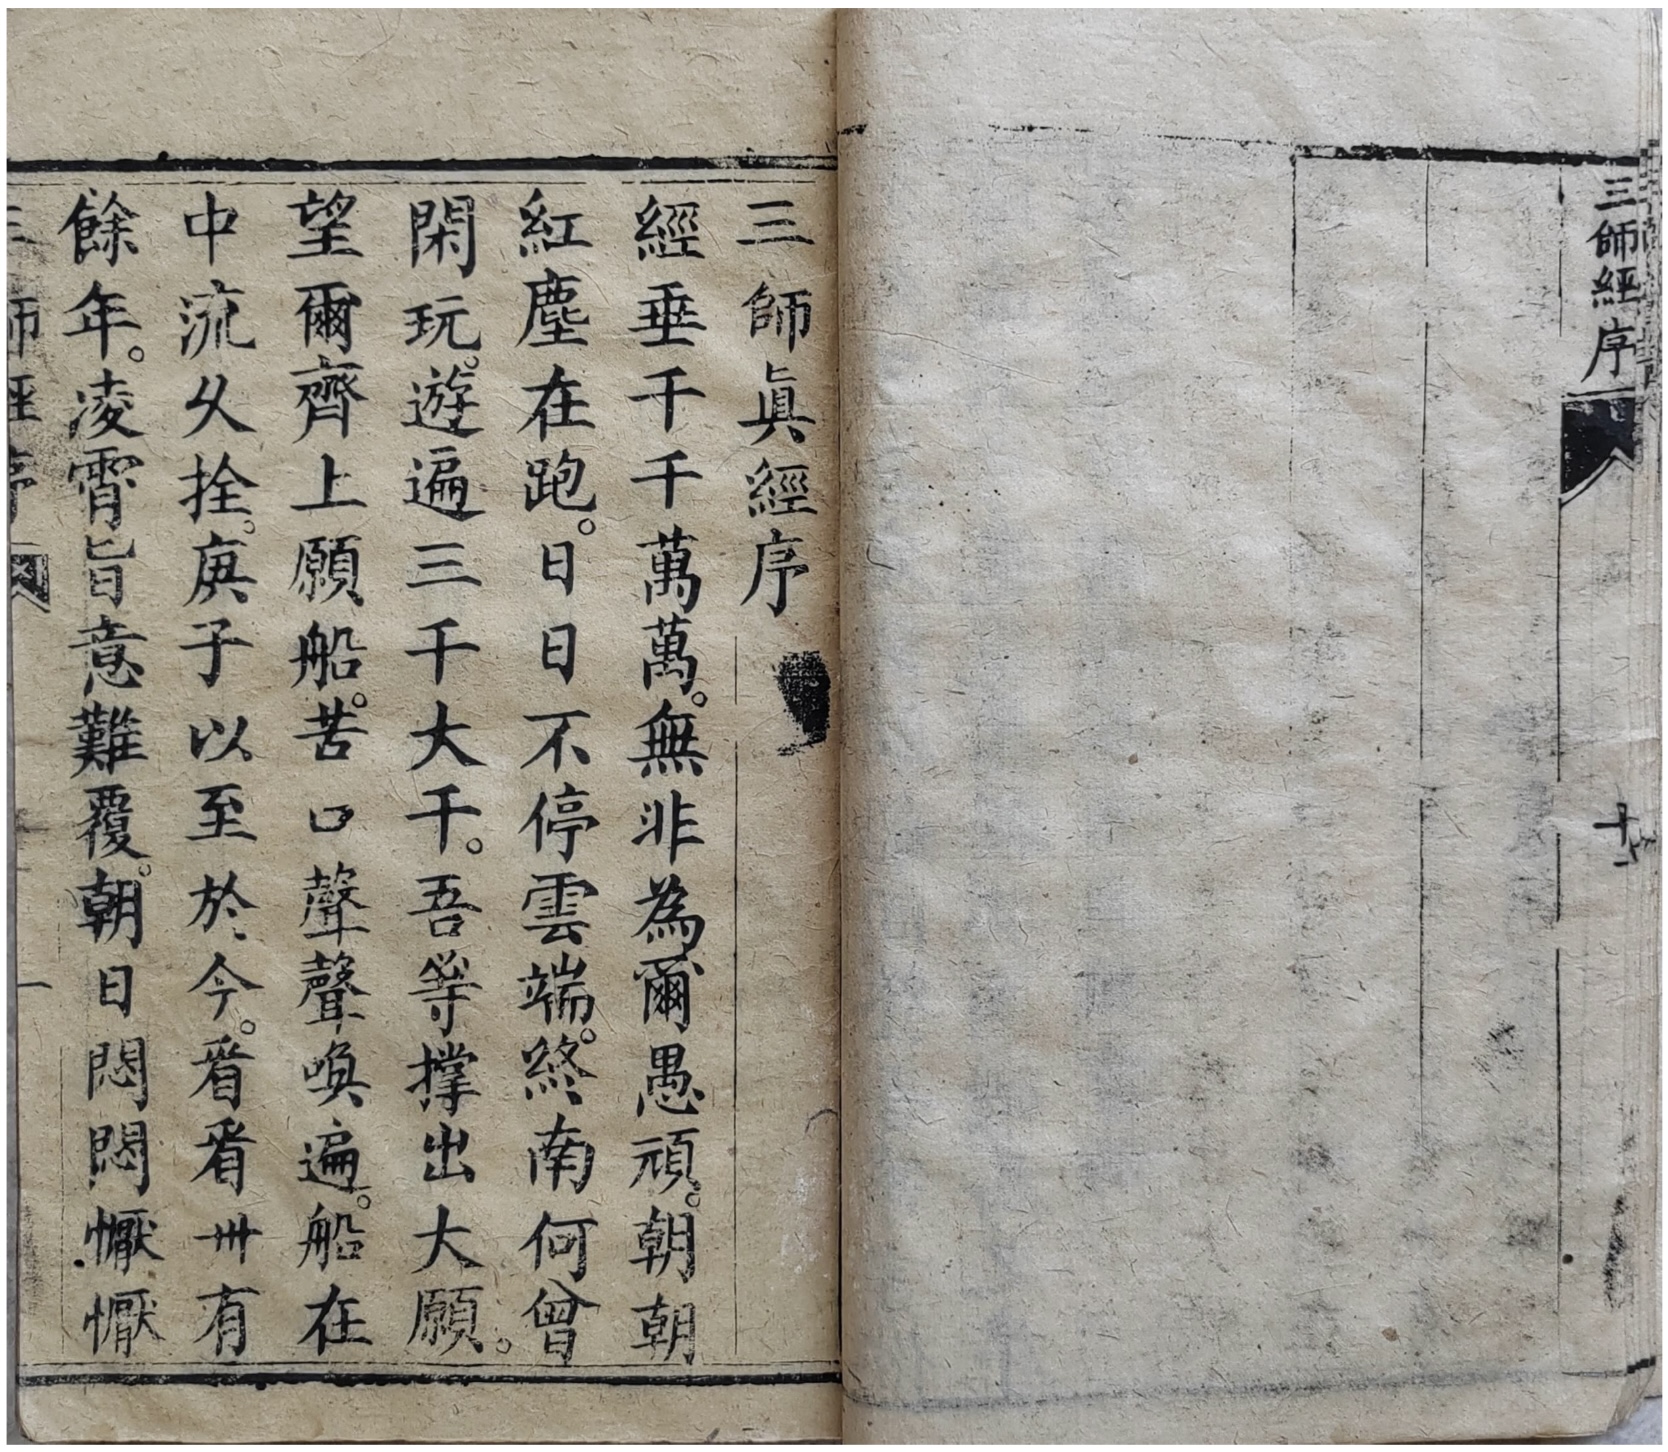 三師經序
十一
三師眞經序
經垂千千萬萬。無非為爾愚頑。朝朝
紅塵在跑。日日不停雲端。終南何曾
閑玩。遊遍三千大千。吾等撑出大願。
望爾齊上願船。苦口聲聲喚遍。船在
中流久拴。庚子以至於今。看看卅有
餘年。凌霄旨意難覆。朝日悶悶懨懨
三師經序
一